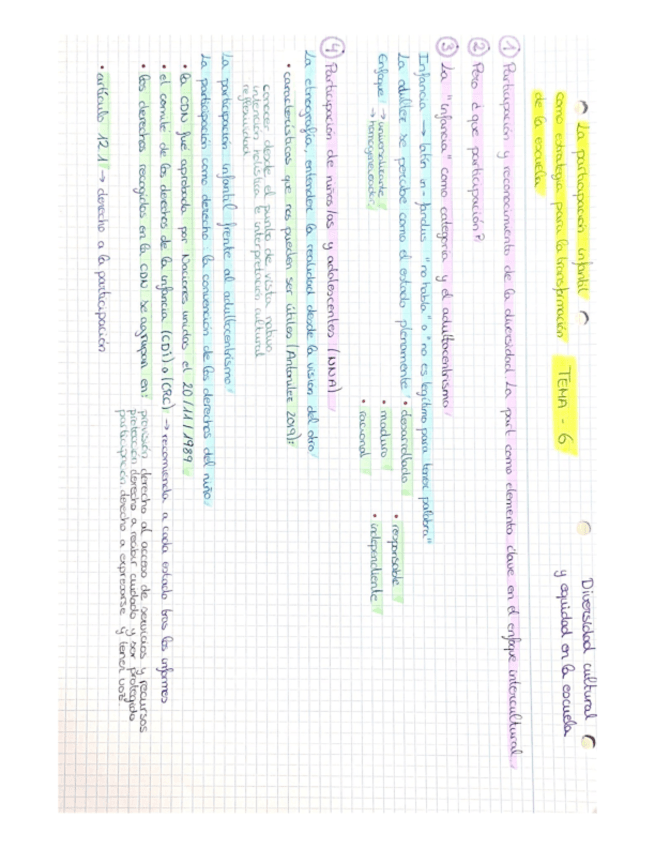 Diversidad cultural
y equidad en la escuela
TEMA - 6
La participación infantil
como estrategia para la transformación
de la escuela
① Participación y reconocimiento de la diversidad La part como elemento clave en el enfoque intercultural
② Pero ¿que participación?
③ La "infancia" como categoría y el adultocentrismo
Infancia → latín in-fandus "no habla" o "no es legítimo para tener palabra"
La adultez se percibe como el estado plenamente • desarrollado • responsable
Enfoque → universalizante • maduro • independiente
→ homogeneizador • racional
④ Participación de niños/as y adolescentes (NNA)
La etnografía, entender la realidad desde la vision del otro
• características que nos pueden ser útiles (Antonulez 2019):
conocer desde el punto de vista nativo
intención holística e interpretación cultural
reflexividad
La participación infantil frente al adultocentrismo
La participación como derecho: la convención de los derechos del niño
• la CDN fue aprobada por Naciones unidas el 20/11/1989
• el comite de los derechos de la infancia (CDI) o (CRC) → recomienda a cada estado tras los informes
• los derechos recogidos en la CDN se agrupan en: provisión derecho al acceso de servicios y recursos
protección derecho a recibir cuidado y ser protegido
participación derecho a expresarse y tener voz
• artículo 12.1 → derecho a la participación